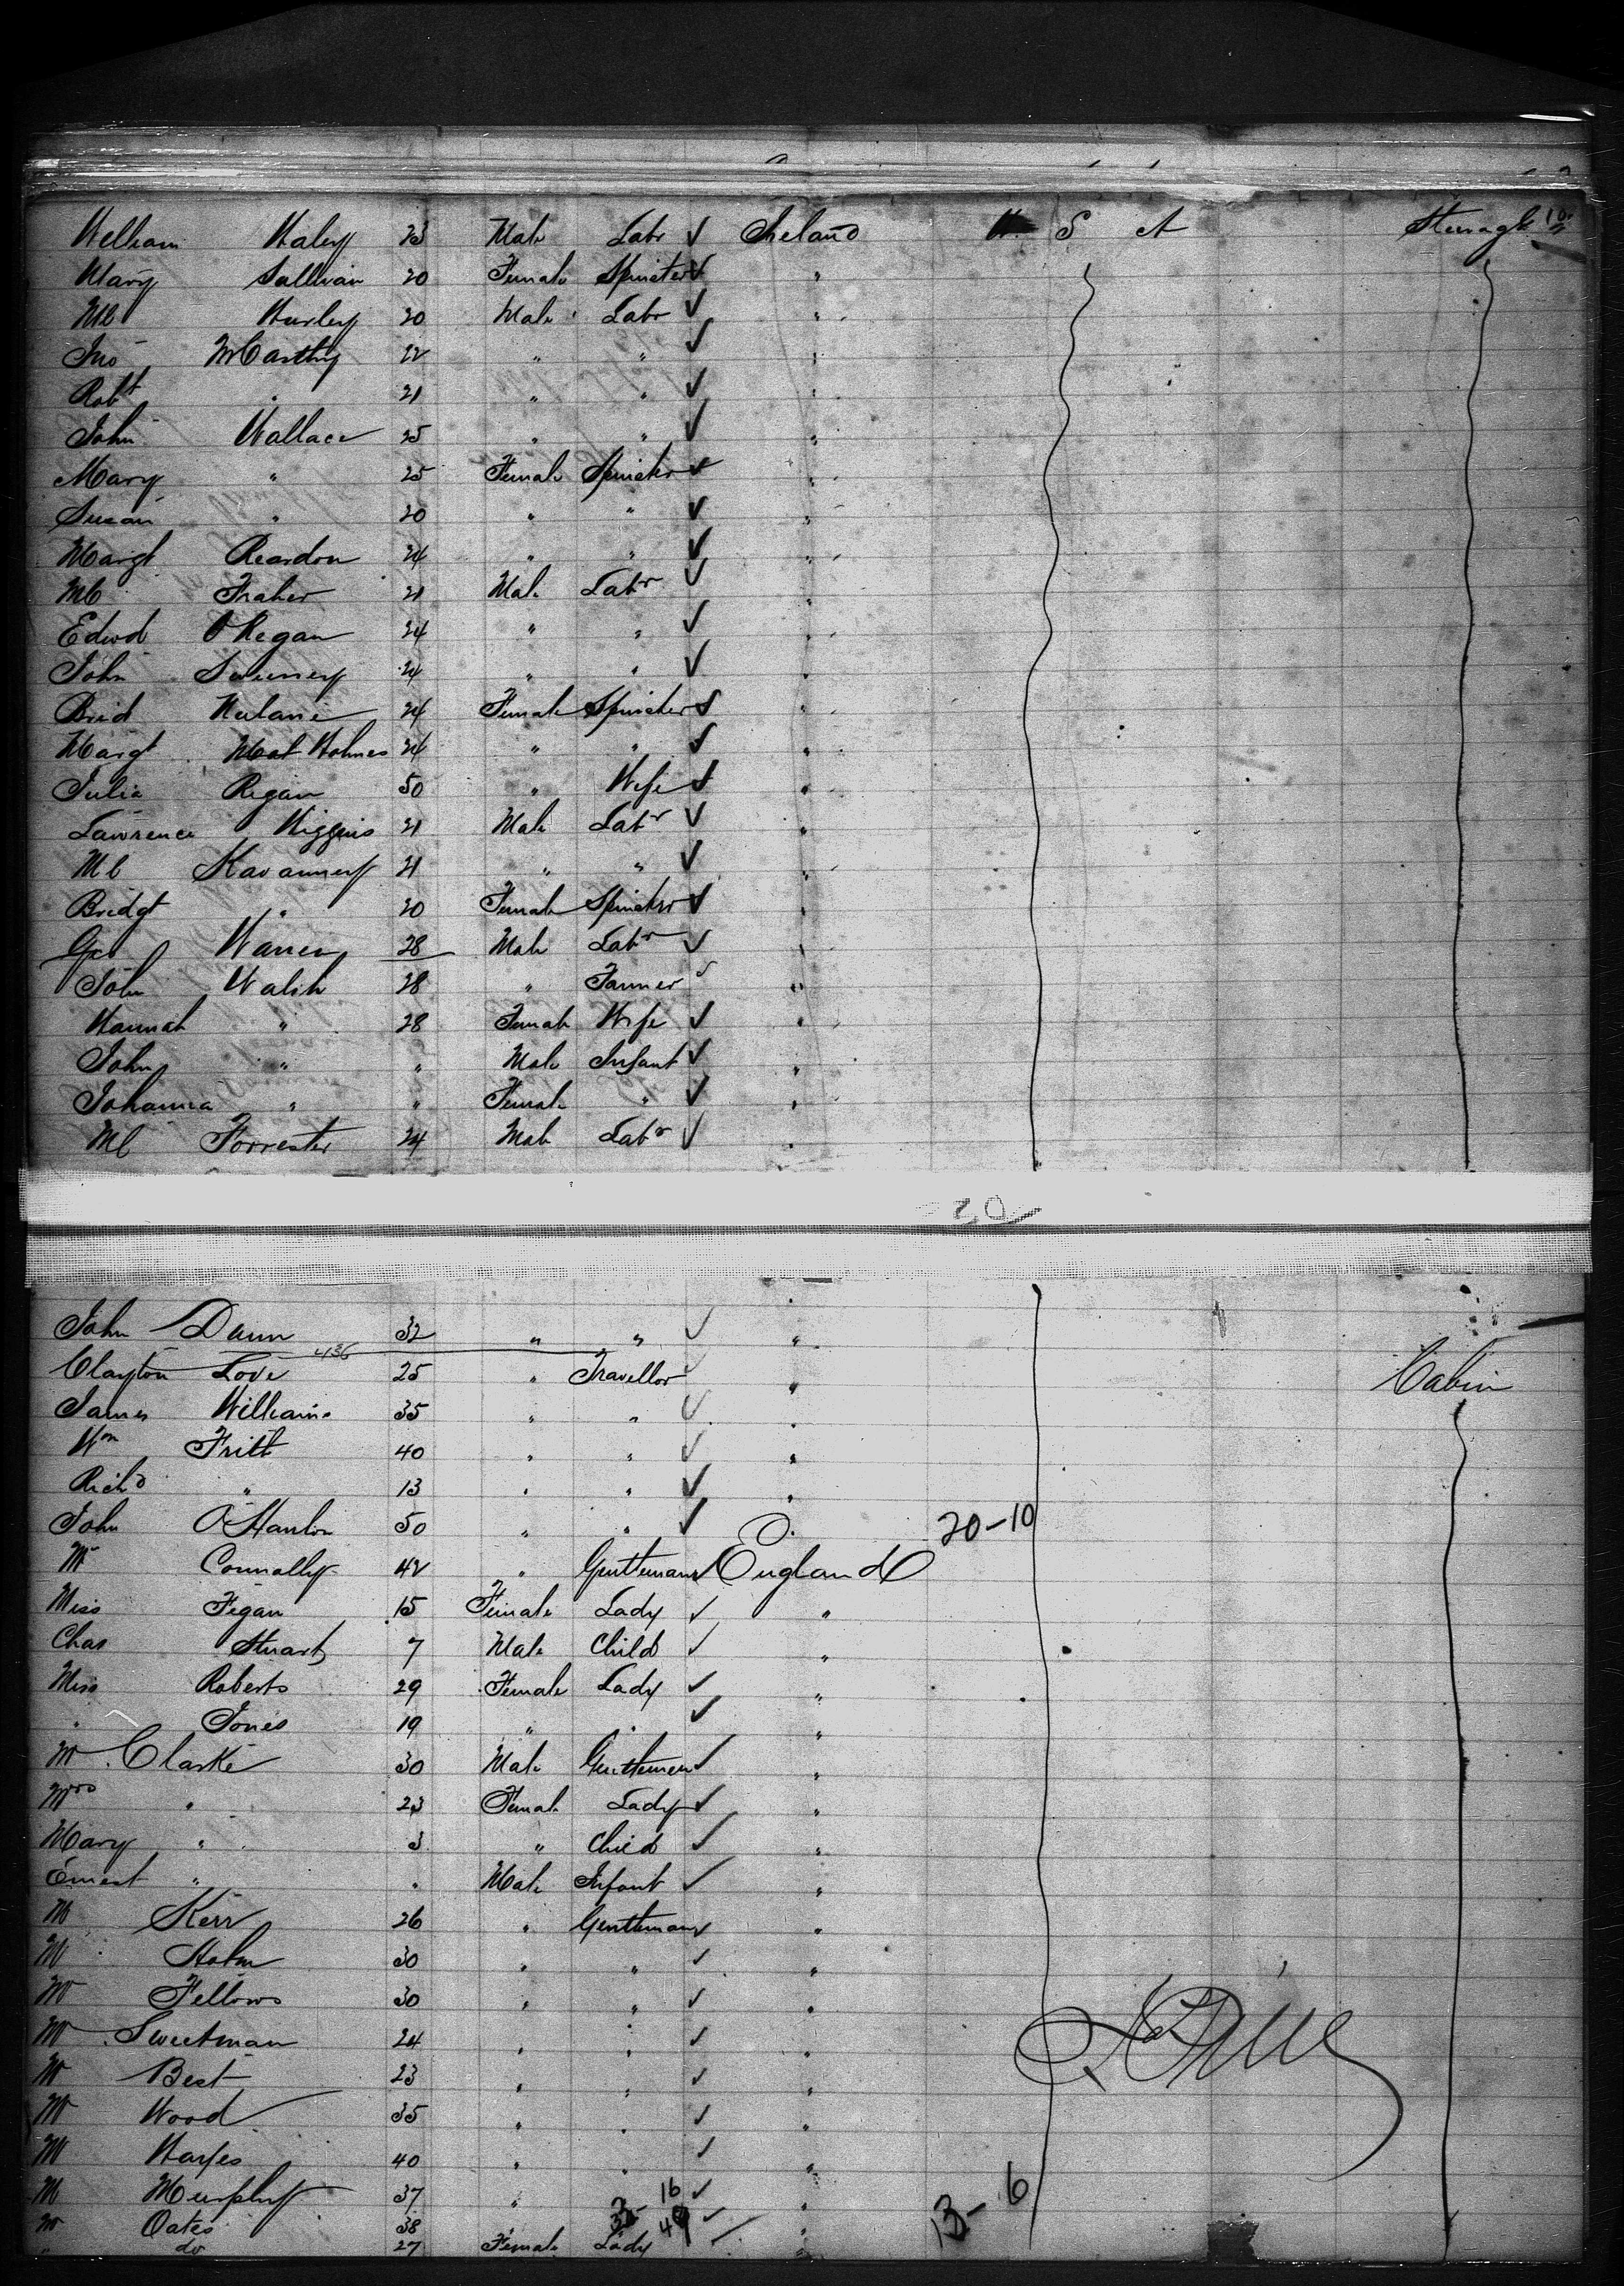 William Haley 23 Male Labr ✓ Ireland U. S A Steerage
Mary Sullivan 20 Female Spinster ✓ "
Ml Hurley 20 Male Labr ✓ "
Jno McCarthy 22 " " ✓ "
Robt " 21 " " ✓ "
John Wallace 25 " " ✓ "
Mary " 25 Female Spinster ✓ "
Susan " 20 " " ✓ "
Margt Reardon 24 " " ✓ "
Ml Fraher 21 Male Labr ✓ "
Edwd O'Regan 24 " " ✓ "
John Sweeney 24 " " ✓ "
Brid 24 Female Spinster ✓ "
Margt Holmes 24 " " ✓ "
Julia Regan 50 " Wife ✓ "
Lawrence Higgins 21 Male Labr ✓ "
Ml Kavanney 21 " " ✓ "
Bridgt " 20 Female Spinster ✓ "
Geo Warren 28 Male Labr ✓ "
John Walsh 28 " Farmer ✓ "
Hannah " 28 Female Wife ✓ "
John " " Male Infant ✓ "
Johanna " " Female " ✓ "
Ml Forrester 24 Male Labr ✓ "
20
John Dunn 32 " " ✓ "
436
Clayton Love 25 " Travellor ✓ " Cabin
James Williams 35 " " ✓ "
Wm Fritt 40 " " ✓ "
Richd " 13 " " ✓ "
John O'Hanlon 50 " " ✓ " 20-10
Mr Connolly 42 " Gentleman ✓ England
Miss Fegan 15 Female Lady ✓ "
Chas Stuart 7 Male Child ✓ "
Miss Roberts 29 Female Lady ✓ "
" Jones 19 " " ✓ "
Mr Clarke 30 Male Gentleman ✓ "
Mrs " 23 Female Lady ✓ "
Mary " 3 " Child ✓ "
Ernest " " Male Infant ✓ "
Mr Kerr 26 " Gentleman ✓ "
Mr Holm 30 " " ✓ "
Mr Fellows 30 " " ✓ "
Mr Sweetman 24 " " ✓ "
Mr Best 23 " " ✓ "
Mr Wood 35 " " ✓ "
Mr Hayes 40 " " ✓ "
Mr Murphy 37 " 16 ✓ " 13-6
Mr Oates 38 ✓ "
" do 27 Female Lady "